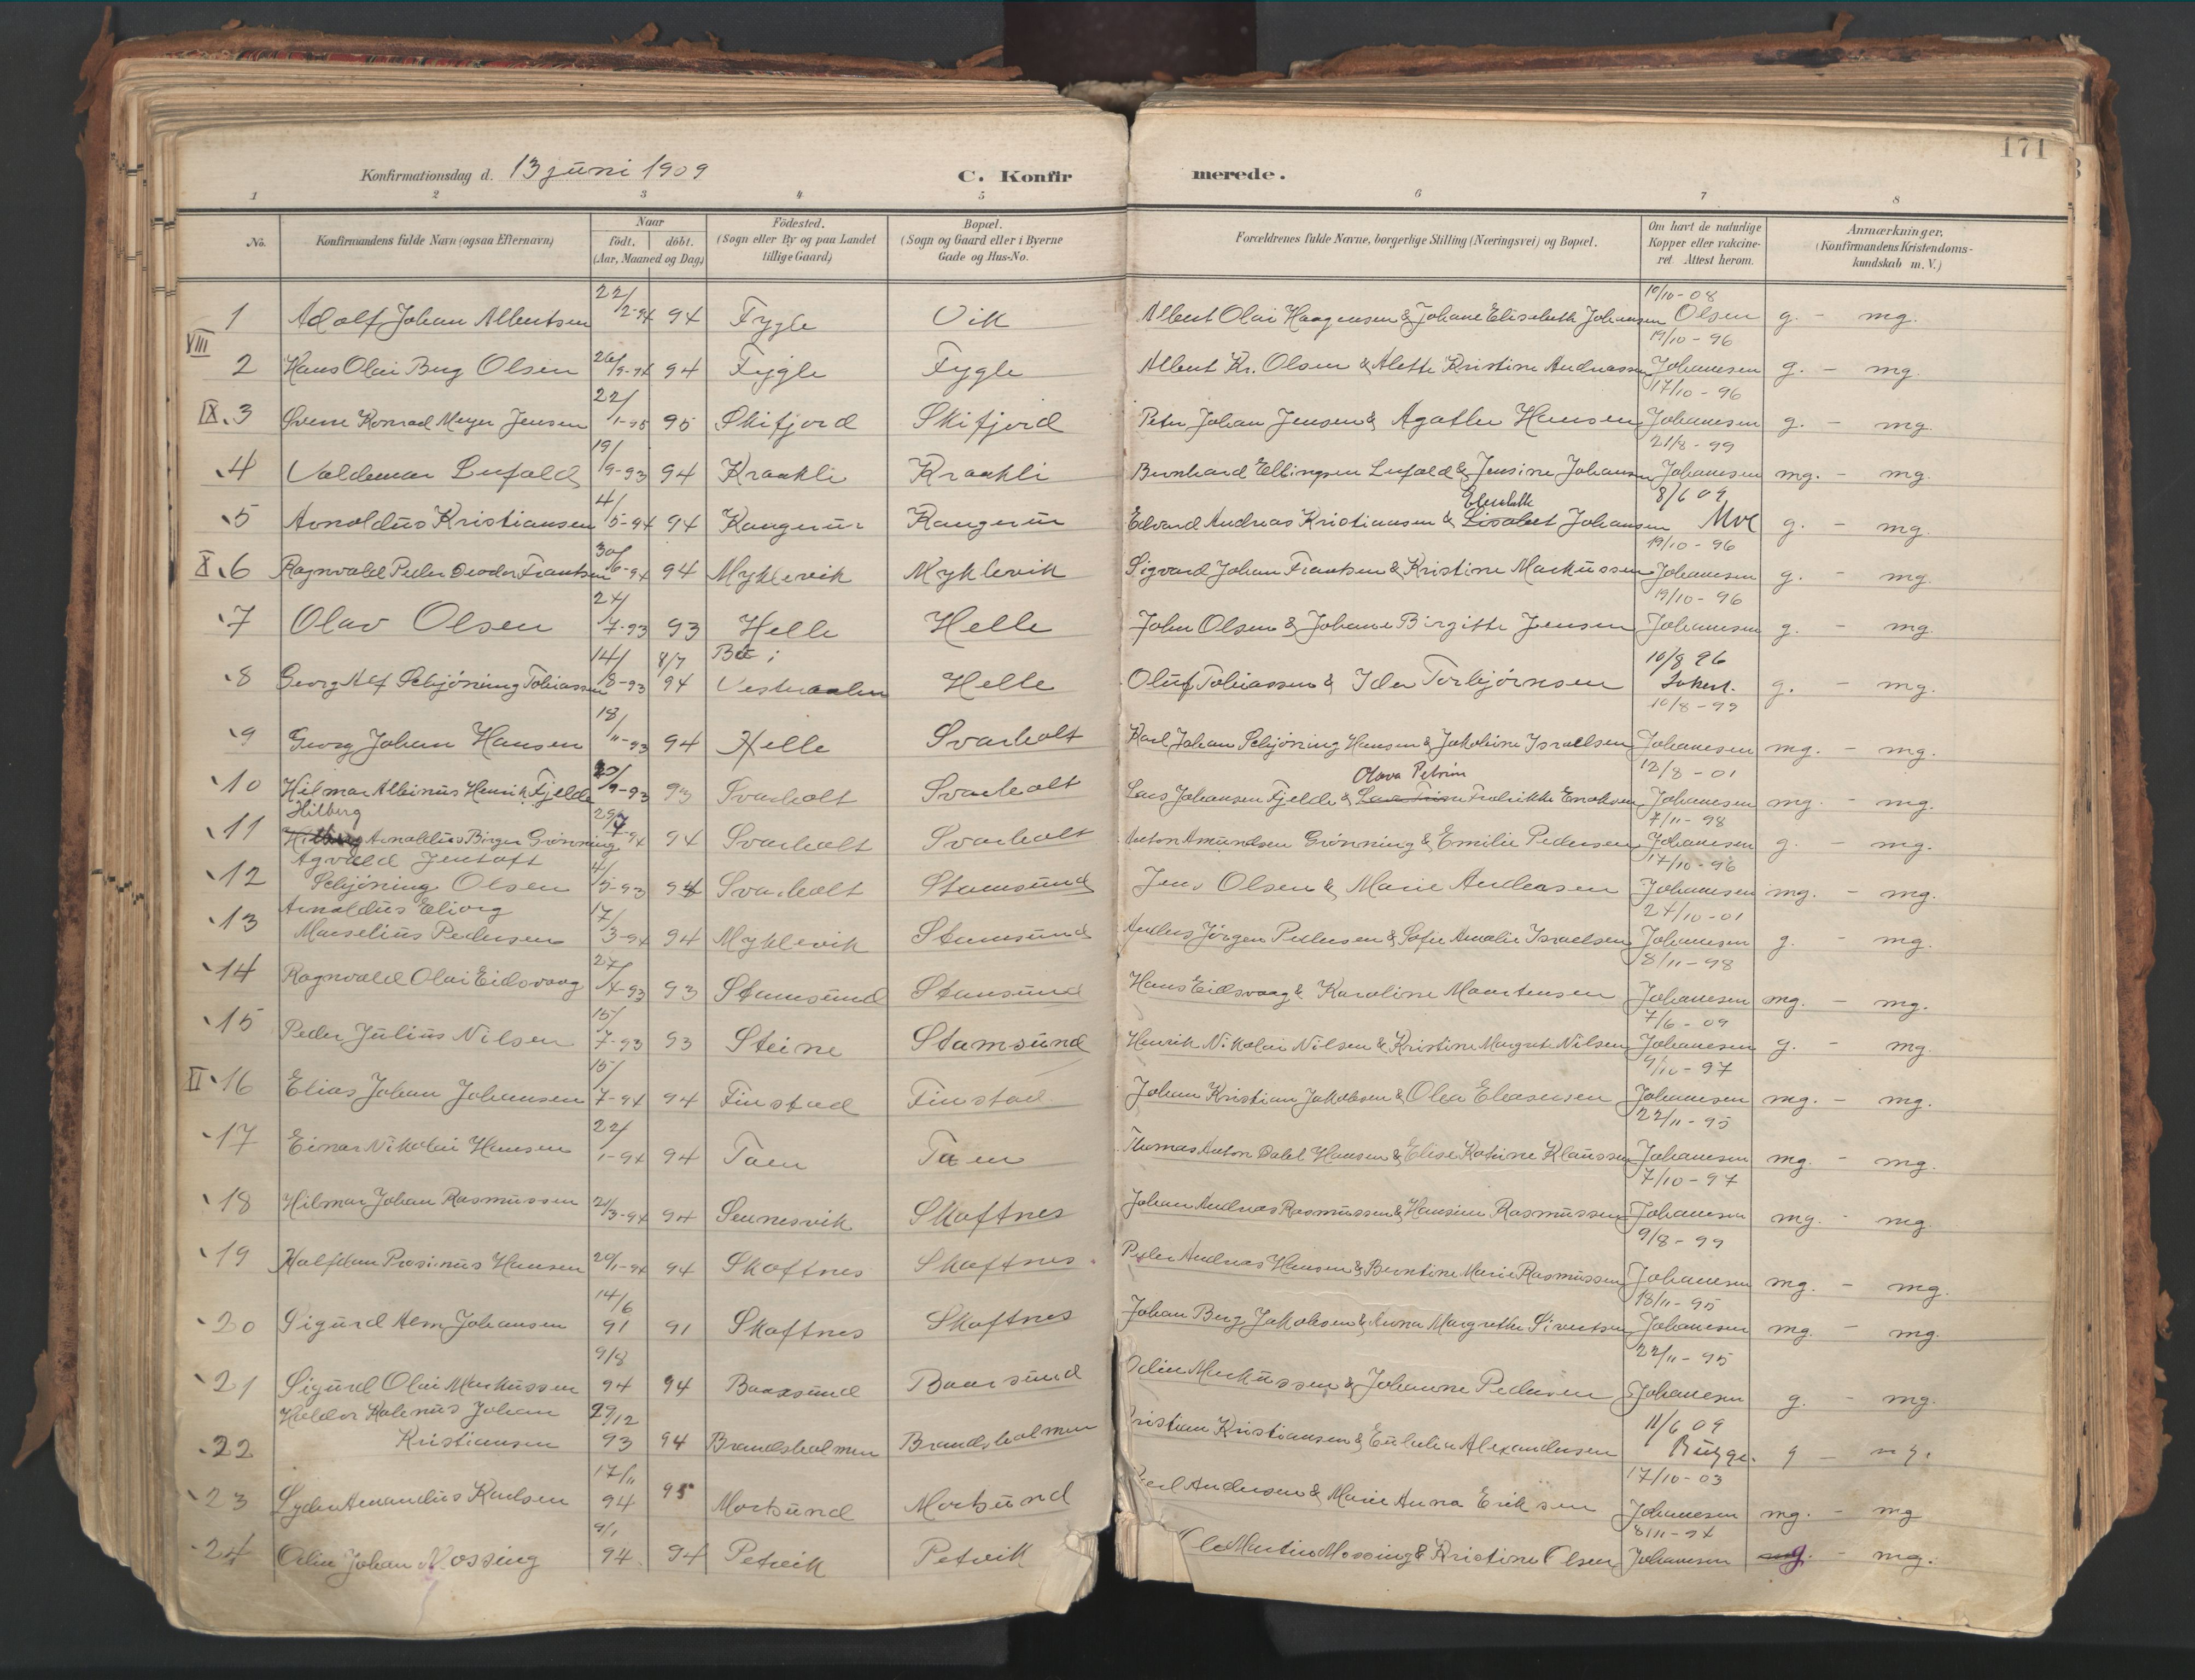 171
Konfirmationsdag d. 13 juni 1909 C. Konfir merede.
1 2 3 4 5 6 7 8
No. Konfirmandens fulde Navn (ogsaa Efternavn) Naar født. døbt. (Aar, Maaned og Dag) Födested. (Sogn eller By og paa Landet tillige Gaard) Bopæl. (Sogn og Gaard eller i Byerne Gade og Hus-No. Forældrenes fulde Navne, borgerlige Stilling (Næringsvei) og Bopæl. Om havt de naturlige Kopper eller vakcineret. Attest herom. Anmærkninger. (Konfirmandens Kristendomskundskab m. V.)
1 Adolf Johan Albertsen 22/2-94 94 Fygle Vik Albert Olai Haagensen & Johane Elisabeth Johansen 10/10-08 Olsen g. - mg.
VIII
2 Hans Olai Berg Olsen 26/9-94 94 Fygle Fygle Albert Kr. Olsen & Alette Kristine Andreassen 19/10-96 Johanesen g. - mg.
IX 3 Sverre Konrad Meyer Jensen 22/1-95 95 Skifjord Skifjord Peter Johan Jensen & Agathe Hansen 17/10-96 Johanesen g. - mg.
4 Valdemar Lufald 19/9-93 94 Kraakli Kraakli Bernhard Ellingsen Lufald & Jensine Johansen 21/8-99 Johanesen mg. - mg.
5 Arnoldus Kristiansen 4/5-94 94 Kangerur Kangerur Edvard Andreas Kristiansen & Lisabet Elisabeth Johansen 8/6 09 Moe g. - mg.
X 6 Ragnvald Peder Deodor Frantsen 30/6-94 94 Myklevik Myklevik Sigvard Johan Frantsen & Kristine Markussen 19/10-96 Johanesen g. - mg.
7 Olav Olsen 24/7-93 93 Helle Helle John Olsen & Johane Birgitte Jensen 19/10-96 Johanesen g. - mg.
8 Georg Alf Schjöning Tobiassen 14/8-93 8/7 94 Bö i Vesteraalen Helle Oluf Tobiassen & Ida Torbjørnsen 10/8 96 g. - mg.
9 Georg Johan Hansen 18/11-93 94 Helle Svarholt Karl Johan Schjöning Hansen & Jakobine Israelsen 10/8-99 Johanesen mg. - mg.
10 Hilmar Albinus Henrik Fjelde 20/9-93 93 Svarholt Svarholt Lars Johansen Fjelde & Olava Petrine Fredrikke Enoksen 12/8-01 Johanesen mg. - mg.
11 Hilberg Arnoldus Birger Grönning 29/7-94 94 Svarholt Svarholt Anton Amundsen Grönning & Emilie Pedersen 7/11-98 Johanesen g. - mg.
12 Agvald Jentoft Schjöning Olsen 4/5-93 94 Svarholt Stamsund Jens Olsen & Marie Andersen 17/10-96 Johanesen mg. - mg.
13 Arnoldus Eliorg Marselius Pedersen 17/3-94 94 Myklevik Stamsund Anders Jörgen Pedersen & Sofie Amalie Israelsen 24/10-01 Johanesen g. - mg.
14 Ragnvald Olai Eidsvaag 27/4-93 93 Stamsund Stamsund Hans Eidsvaag & Karoline Maartensen 8/11-98 Johanesen mg. - mg.
15 Peder Julius Nilsen 15/7-93 93 Steine Stamsund Henrik Nikolai Nilsen & Kristine Margrete Nilsen 7/6-09 Johanesen g. - mg.
XI 16 Elias Johan Johansen 15/7-94 94 Finstad Finstad Johan Kristian Jakobsen & Olea Eleasensen 9/10-97 Johanesen mg. - mg.
17 Einar Nikolai Hansen 22/1-94 94 Taen Taen Thomas Anton Dahl Hansen & Elise Katrine Klaussen 22/11-95 Johanesen mg. - mg.
18 Hilmar Johan Rasmussen 21/3-94 94 Sennesvik Skaftnes Johan Andreas Rasmussen & Hansine Rasmussen 7/10-97 Johanesen mg. - mg.
19 Halfdan Prosinus Hansen 20/1-94 94 Skaftnes Skaftnes. Peder Andreas Hansen & Berntine Marie Rasmussen 9/8-99 Johanesen mg. - mg.
20 Sigurd Alm Johansen 14/6 91 91 Skaftnes Skaftnes Johan Berg Jakobsen & Anna Margrethe Sivertsen 18/11-95 Johanesen mg. - mg.
21 Sigurd Olai Markussen 9/8 94 94 Baarsund Baarsund Odin Markussen & Johanne Pedersen 22/11-95 Johanesen g - mg.
22 Haldor Kalenus Johan Kristiansen 29/12 93 94 Brandsholmen Brandsholmen ristian Kristiansen & Eulalia Alexandersen 11/6 09 Bugge. g - mg.
23 Lyder Amandus Karlsen 17/11 94 95 Mortsund Mortsund Karl Andersen & Marie Anna Eriksen 17/10-03 Johanesen mg. - mg
24 Odin Johan Mossing 9/1 94. 94 Petvik Petvik Ole Martin Mossing & Kristine Olsen 8/11-94 Johanesen g. - mg.